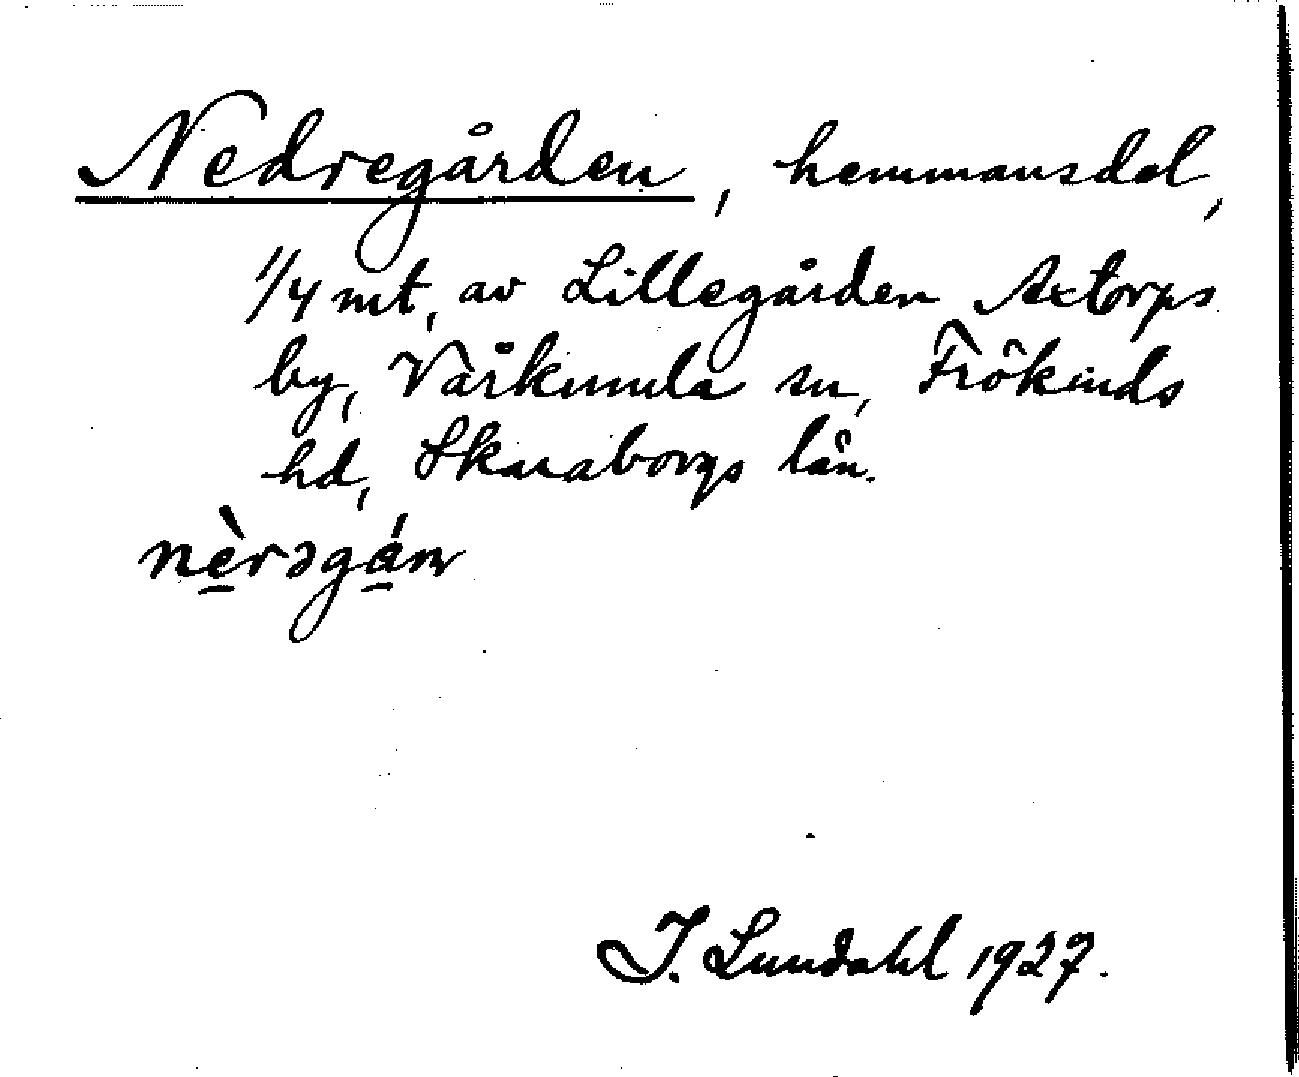 Nedregården, hemmansdel,
1/4 mt, av Lillegården Axtorps
by, Vårkumla sn, Frökinds
hd, Skaraborgs län.
nè̱rəgá̱ṇ
I. Lundahl 1927.